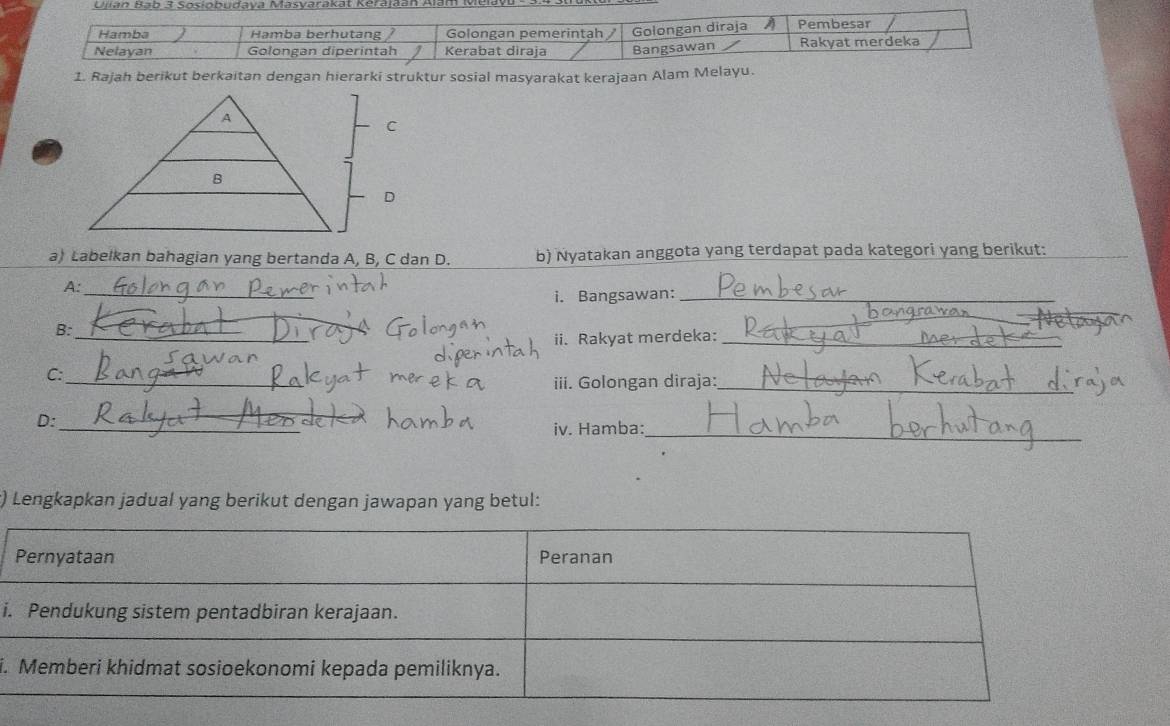 Ujian Bab 3 Sosiobudaya Masyarakat Kerajaan Alam Melayu - 3.4
Hamba Hamba berhutang Golongan pemerintah Golongan diraja Pembesar
Nelayan Golongan diperintah Kerabat diraja Bangsawan Rakyat merdeka
1. Rajah berikut berkaitan dengan hierarki struktur sosial masyarakat kerajaan Alam Melayu.
A
C
B
D
a) Labelkan bahagian yang bertanda A, B, C dan D.
b) Nyatakan anggota yang terdapat pada kategori yang berikut:
A: Golongan Pemerintah
i. Bangsawan: Pembesar
B: Kerabat Diraja Golongan diperintah
ii. Rakyat merdeka: Rakyat bangsawan merdeka Nelayan
C: Bangsawan Rakyat mereka
iii. Golongan diraja: Nelayan Kerabat diraja
D: Rakyat Merdeka hamba
iv. Hamba: Hamba berhutang
) Lengkapkan jadual yang berikut dengan jawapan yang betul:
Pernyataan Peranan
i. Pendukung sistem pentadbiran kerajaan.
i. Memberi khidmat sosioekonomi kepada pemiliknya.